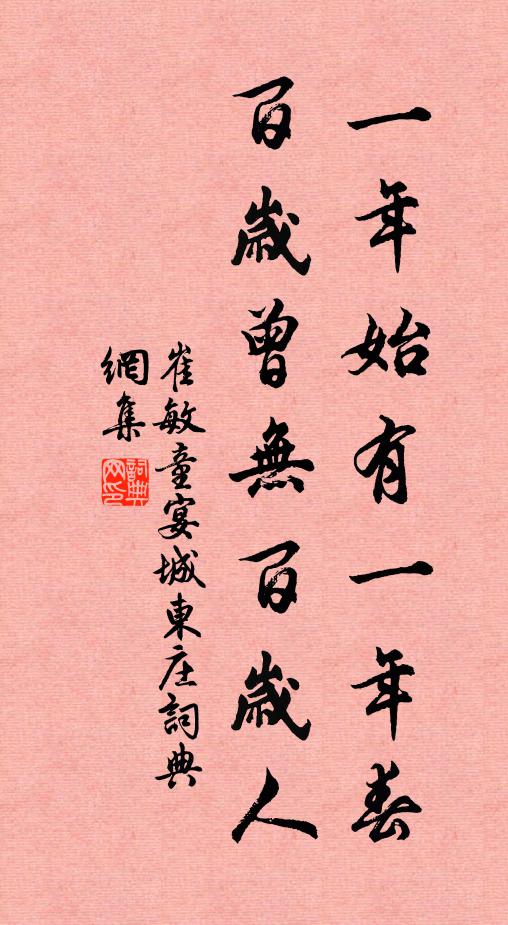 一年始有一年春
百歲曾無百歲人
崔敏童宴城東庄詞典
網集
詞典網印